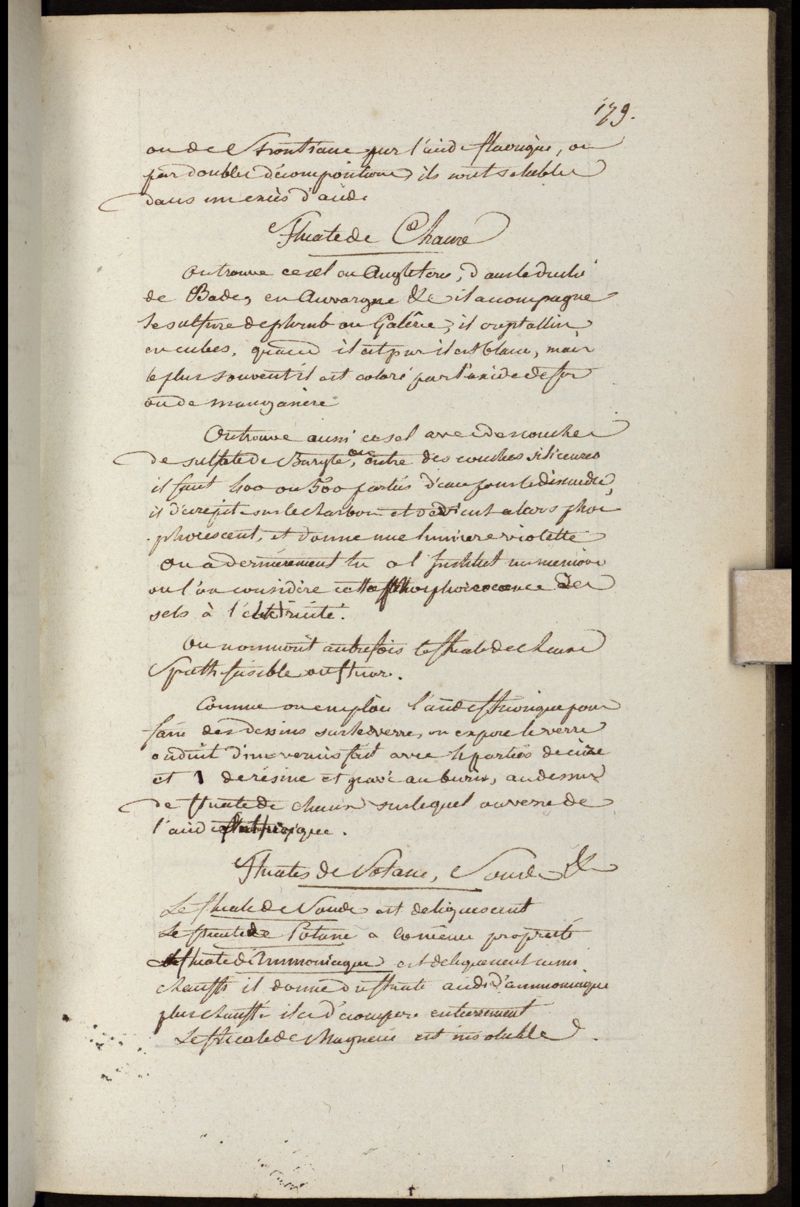 179.
ou de Strontiane par l'acide fluorique, ou
par doubles décompositions, ils sont solubles
dans un excès d'acide
Fluate de Chaux
On trouve ce sel en Angleterre, dans le duché
de Bade, en Auvergne &c il accompagne
le sulfure de plomb ou Galêne, il crystallise
en cubes, quand il est pur il est blanc, mais
le plus souvent il est coloré par l'oxide de fer
ou de manganèse
On trouve aussi ce sel avec des couches
de sulfate de Baryte, ou entre des couches siliceuses
il faut 400 ou 500 parties d'eau pour le dissoudre,
il décrépite sur le charbon et devient alors phos
phorescent, et donne une lumiere violette
On a dernièrement lu a l'Institut un memoire
ou l'on considére cette phosphorescence des
sels à l'électricité.
On nommoit autrefois le fluate de chaux
Spath fusible ou fluor.
Comme on emploie l'acide fluorique pour
faire des dessins sur le verre, on expose le verre
enduit d'un vernis fait avec 4 parties de cire
et 1 de résine et gravé au burin, au dessus
de fluate de chaux sur lequel on verse de
l'acide sulfurique.
Fluates de Potasse, Soude &c
Le fluate de Soude est deliquescent
Le fluate de Potasse a la même propriété
Le fluate d'Ammoniaque est deliquescent aussi
chauffé il donne du fluate acide d'ammoniaque
plus chauffé il se décompose entierement
Le fluate de Magnesie est insoluble.